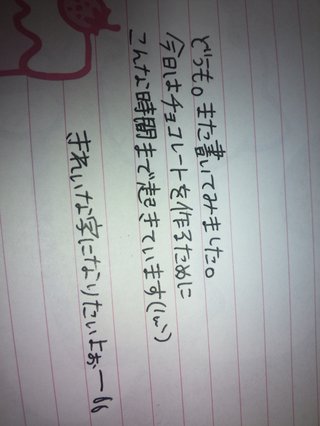 どうも。また書いてみました。
今日はチョコレートを作るために
こんな時間まで起きています(´ω`)
きれいな字になりたいよぉー"